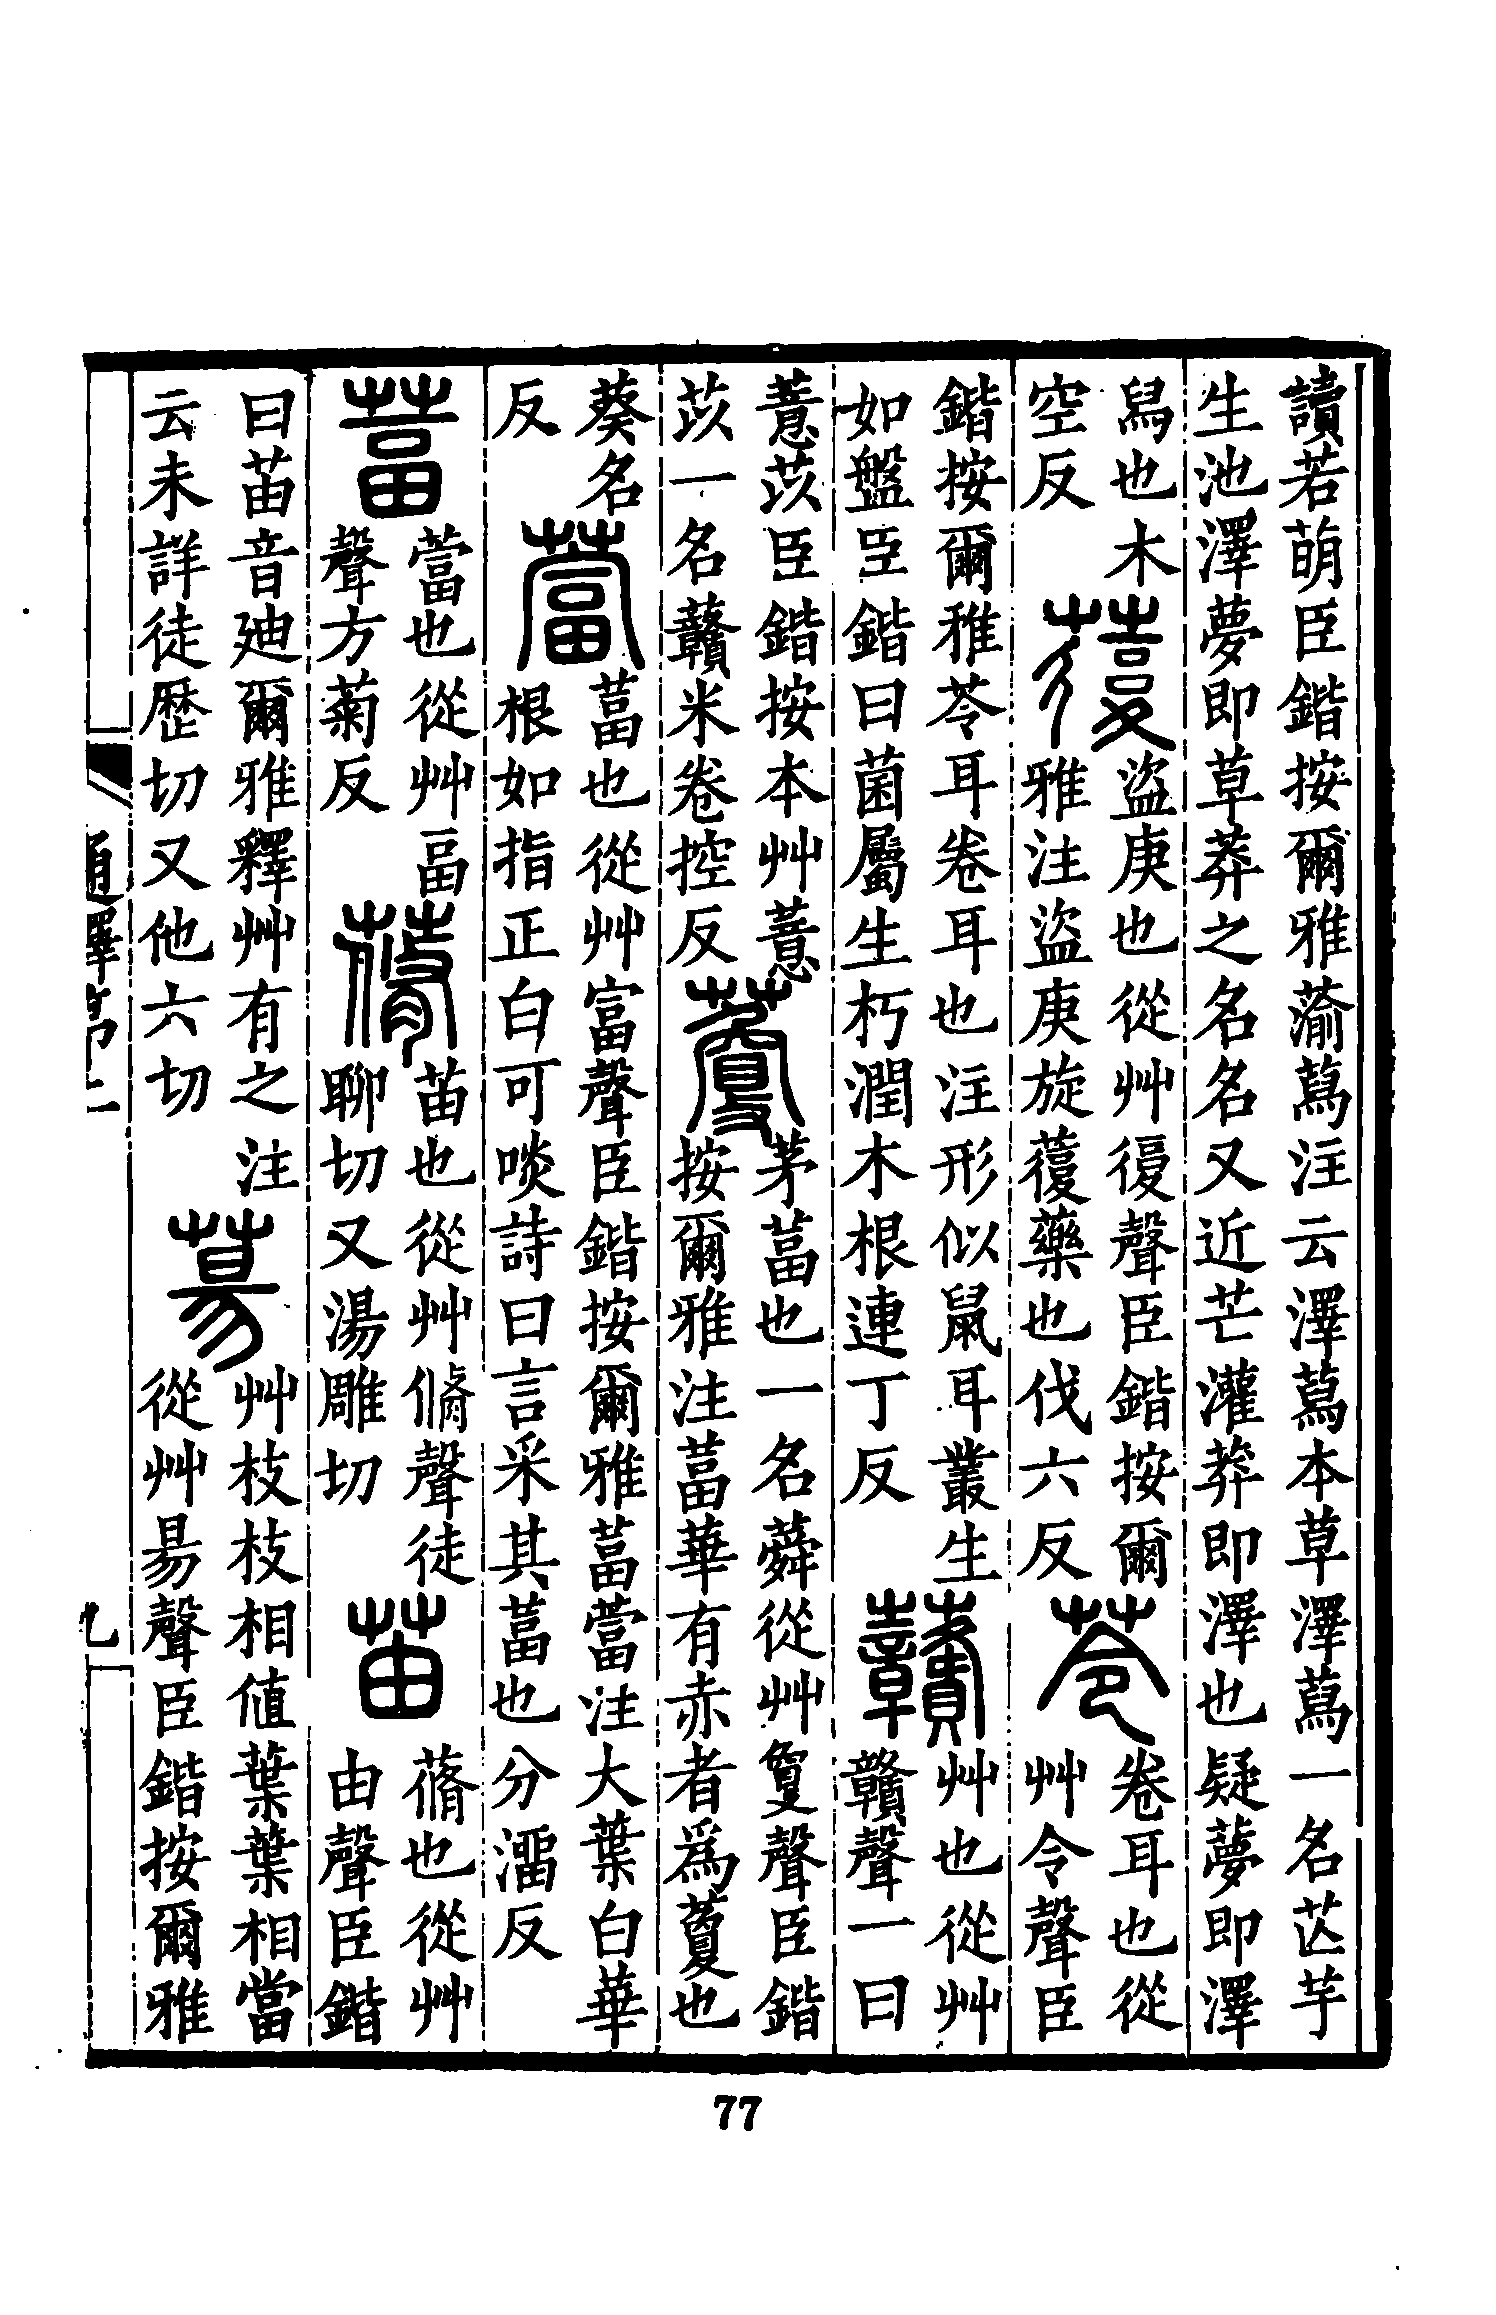 讀若萌臣鍇按爾雅蕍蕮注云澤蕮本草澤蕮一名芒芋
生池澤夢即草莽之名名又近芒灌莽即澤也疑夢即澤
舄也木
空反
蕧
盜庚也從艸復聲臣鍇按爾
雅注盜庚旋蕧藥也伐六反
苓
卷耳也從
艸令聲臣
鍇按爾雅苓耳卷耳也注形似鼠耳叢生
如盤臣鍇曰菌屬生朽潤木根連丁反
贛
艸也從艸
贛聲一曰
薏苡臣鍇按本艸薏
苡一名贛米卷控反
藑
茅葍也一名蕣從艸敻聲臣鍇
按爾雅注葍華有赤者爲藑也
葵名
反
䔰
葍也從艸富聲臣鍇按爾雅葍䔰注大葉白華
根如指正白可啖詩曰言采其葍也分溜反
葍
䔰也從艸畐
聲方菊反
蓨
苖也從艸脩聲徒
聊切又湯雕切
苖
蓨也從艸
由聲臣鍇
曰苖音廸爾雅釋艸有之注
云未詳徒歷切又他六切
𦳝
艸枝枝相值葉葉相當
從艸昜聲臣鍇按爾雅
通釋第二
九
77